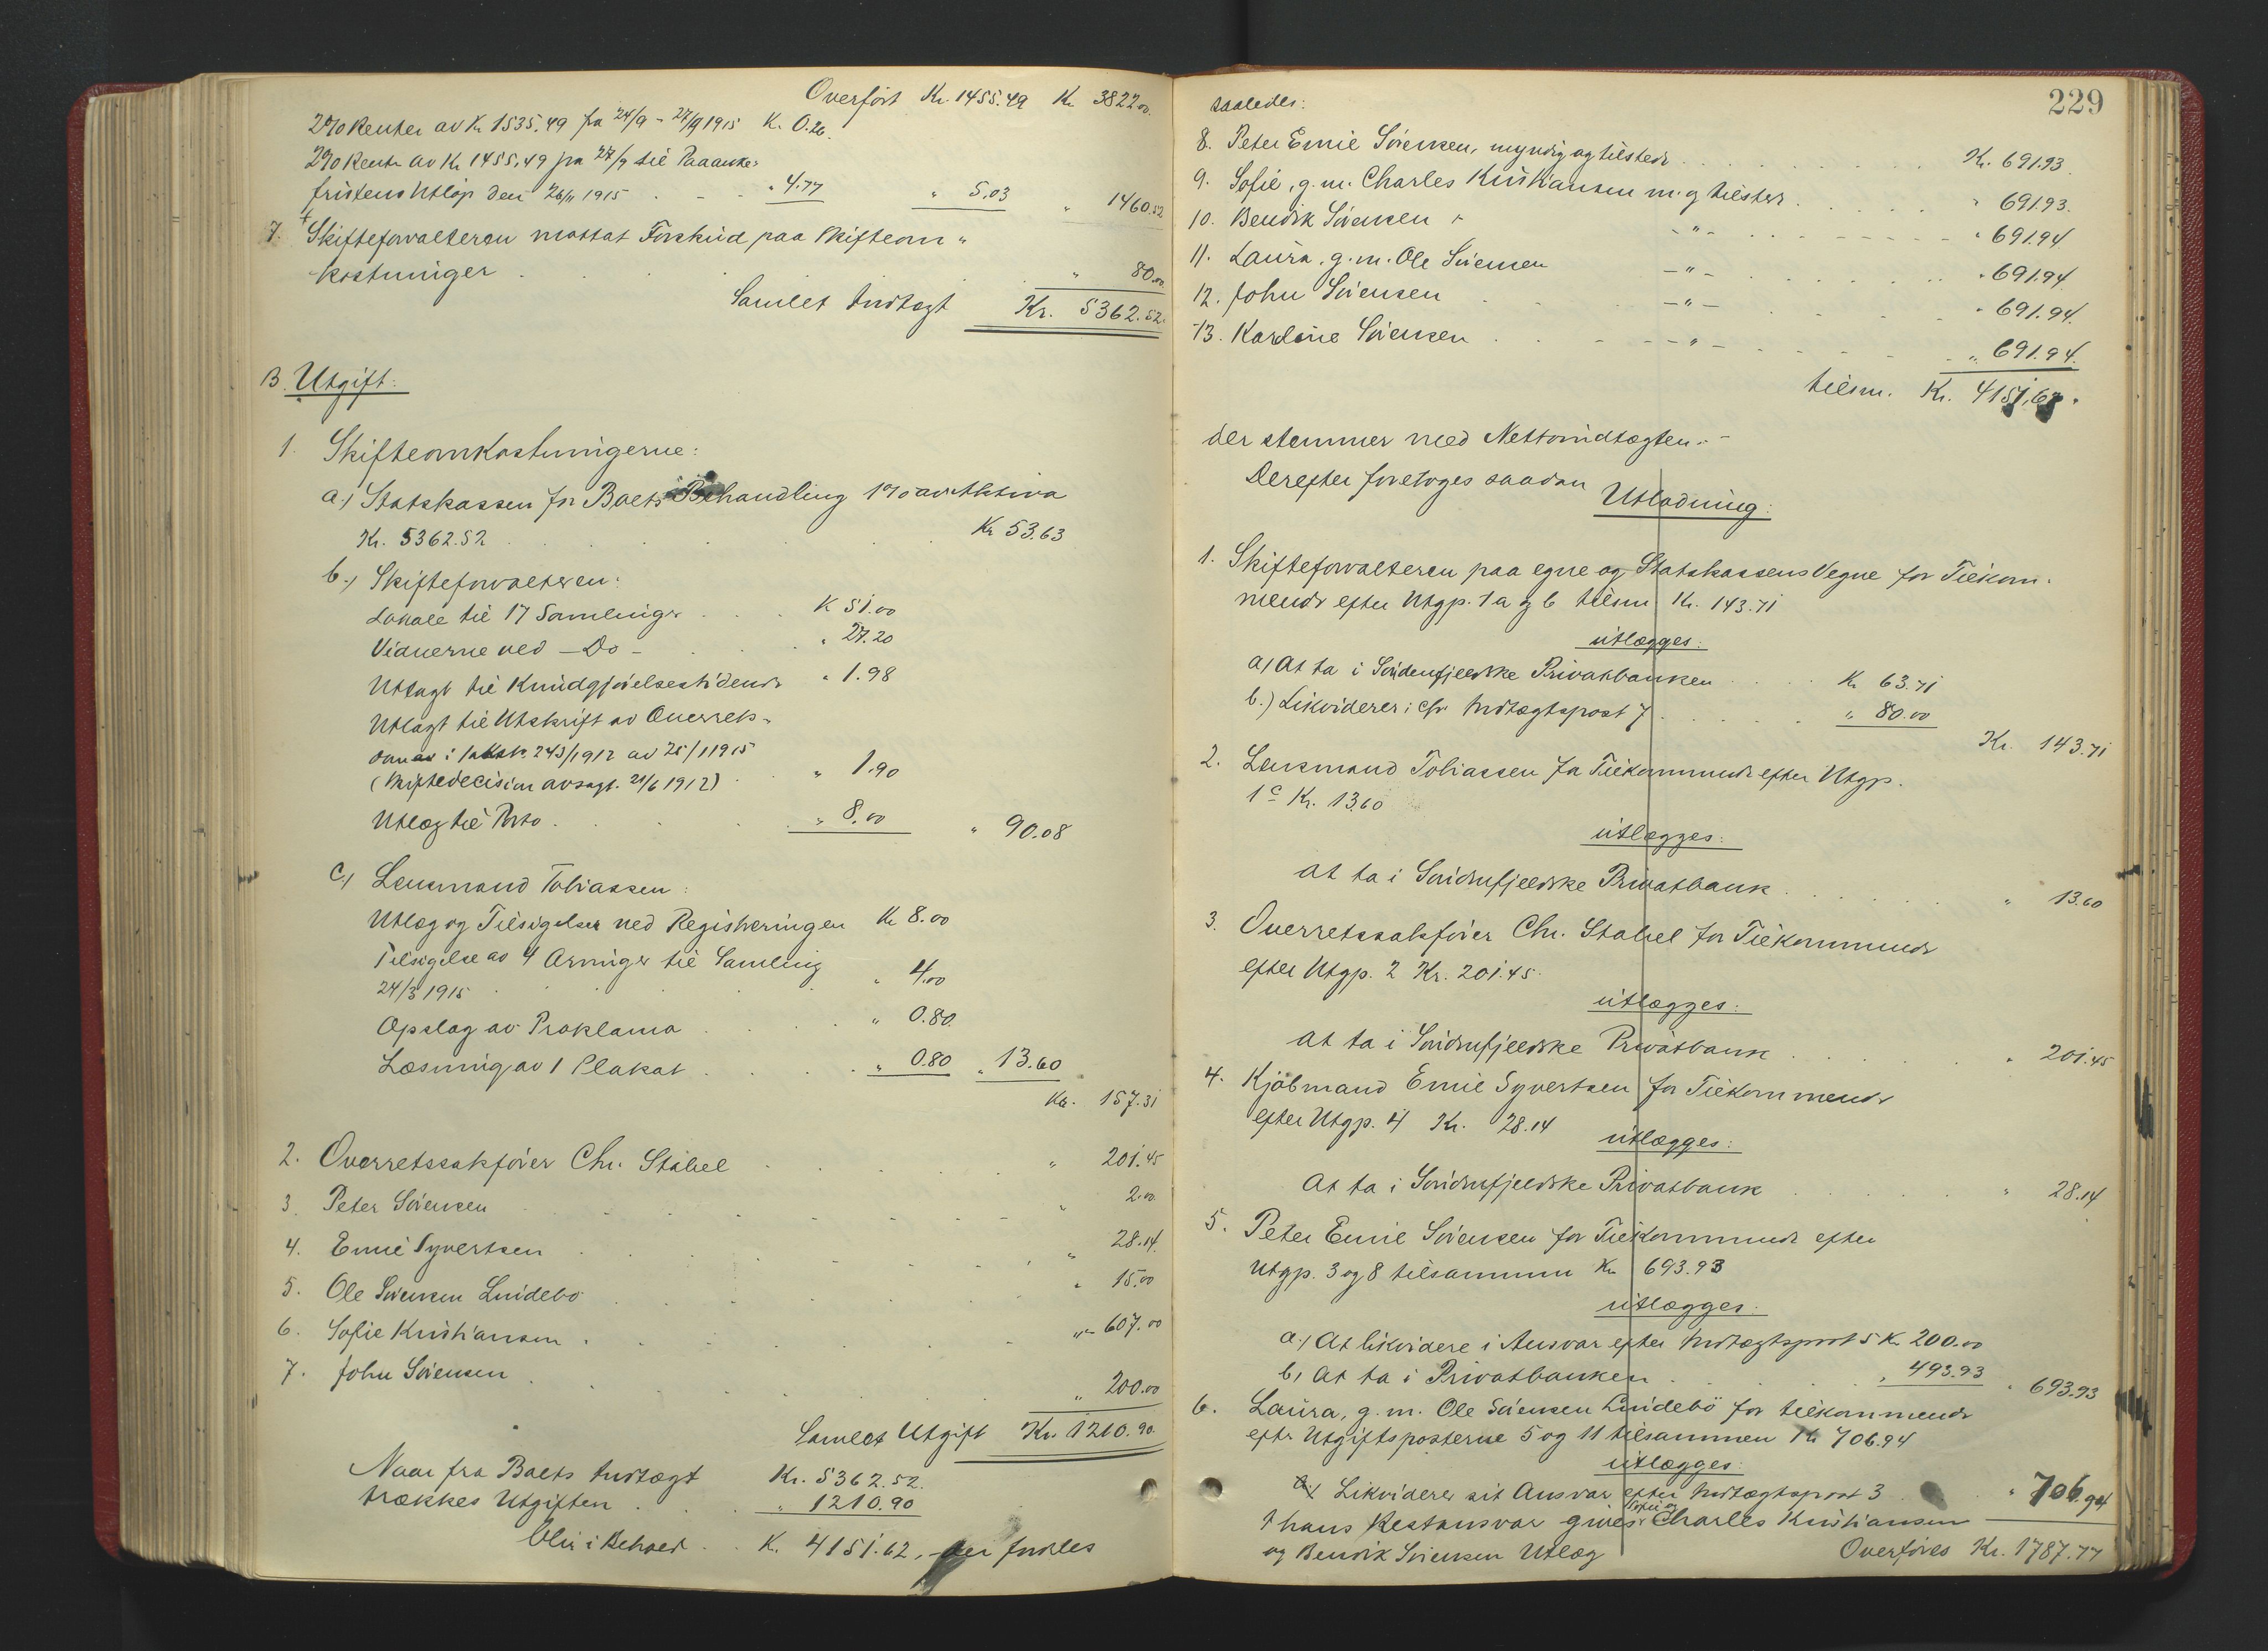 Overført Kr. 1455.49 Kr. 3822.00.
2% Renter av Kr. 1535.49 fra 24/9 - 27/9 1915 K. 0.26
2% Rente av Kr 1455.49 fra 27/9 til Paaanke-
fristens Utløp den 26/11 1915 " 4.77 " 5.03 " 1460.52
7. Skifteforvalteren mottat Forskud paa Skifteom-
kostninger " 80.00
Samlet Indtægt Kr. 5362.52.
B. Utgift:
1. Skifteomkostningerne:
a.) Statskassen for Boets Behandling 1% av Aktiva
Kr. 5362.52 Kr 53.63
b.) Skifteforvalteren:
Lokale til 17 Samlinger K 51.00
Vidnerne ved - Do - " 27.20
Utlagt til Kundgjørelsestidende " 1.98
Utlagt til Utskrift av Overrets-
243/1912 av 25/1 1915
(Skiftedecision avsagt. 21/6 1912) " 1.90
Utlæg til Porto " 8.00 " 90.08
c.) Lensmand Tobiassen:
Utlæg og Tilsigelser ved Registreringen Kr 8.00
Tilsigelse av 4 Arvinger til Samling
24/3 1915 " 4.00
Opslag av Proklama " 0.80
Læsning av 1 Plakat " 0.80 " 13.60
Kr. 157.31
2. Overretssakfører Chr. Stabel " 201.45
3. Peter Sørensen " 2.00
4. Emil Syvertsen " 28.14
5. Ole Sørensen Lindebø " 15.00
6. Sofie Kristiansen " 607.00
7. John Sørensen " 200.00
Samlet Utgift Kr. 1210.90
Naar fra Boets Indtægt Kr. 5362.52.
trækkes Utgiften " 1210.90
blir i Behold K. 4151.62, - der fordeles
229
saaledes:
8. Peter Emil Sørensen, myndig og tilstede Kr. 691.93
9. Sofie, g.m. Charles Kristiansen m. og tilstede " 691.93.
10. Bendik Sørensen - " - " 691.94
11. Laura, g.m. Ole Sørensen - " - " 691.94
12. John Sørensen - " - " 691.94.
13. Karoline Sørensen - " - " 691.94.
tilsm. Kr. 4151,62.
der stemmer med Nettoindtægten.-
Derefter foretoges saadan
Utlodning:
1. Skifteforvalteren paa egne og Statskassens Vegne for Tilkom-
mende efter Utgp. 1a og b tilsm Kr. 143.71
utlægges:
a) At ta i Søndenfjeldske Privatbanken Kr 63.71
b.) Likviderer i cfr. Indtægtspost 7 " 80.00
Kr. 143.71
2. Lensmand Tobiassen for Tilkommende efter Utgp.
1c Kr. 13.60
utlægges:
At ta i Søndenfjeldske Privatbank " 13.60
3. Overretssakfører Chr. Stabel for Tilkommende
efter Utgp. 2 Kr. 201.45.
utlægges:
At ta i Søndenfjeldske Privatbank " 201.45
4. Kjøbmand Emil Syvertsen for Tilkommende
efter Utgp. 4 Kr. 28.14
utlægges:
At ta i Søndenfjeldske Privatbank " 28.14
5. Peter Emil Sørensen for Tilkommende efter
Utgp. 3 og 8 tilsammen Kr 693.93
utlægges:
a.) At likvidere i Ansvar efter Indtægtspost 5 K. 200.00
b) At ta i Privatbanken " 493.93 " 693.93
6. Laura, g.m. Ole Sørensen Lindebø for tilkommende
efter Utgiftsposterne 5 og 11 tilsammen Kr 706.94
utlægges:
Likviderer sit Ansvar efter Indtægtspost 3 " 706.94
I hans Restansvar gives Sofie og Charles Kristiansen
og Bendik Sørensen Utlæg Overføres Kr. 1787.77